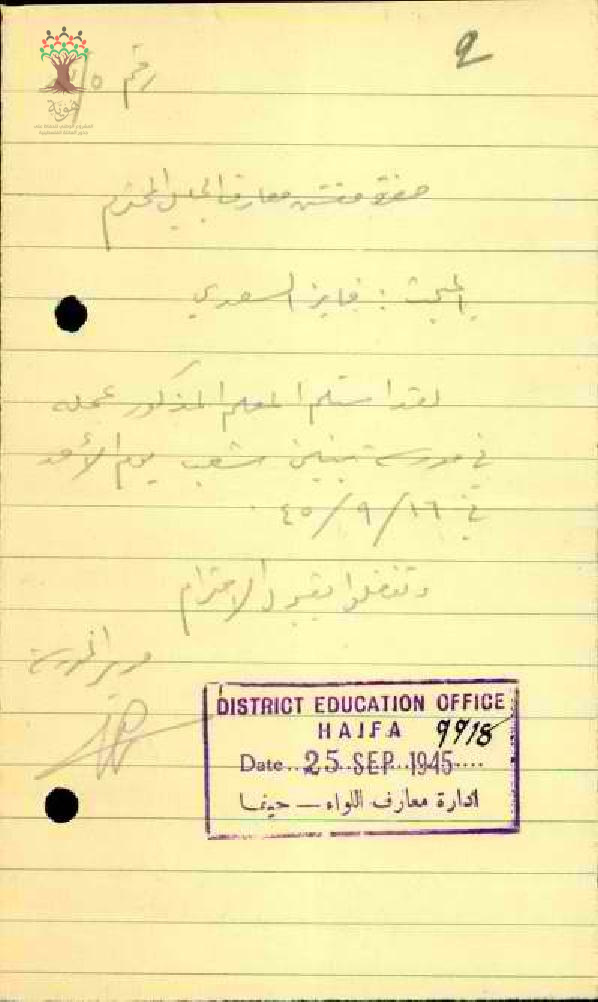 9
رقم
هوية
حضرة مفتش معارف الجليل المحترم
المبحث : فايز السعدي
لقد استلم المعلم المذكور عمله
في مدرسة بنين شعب يوم الأحد
في ١٦/٩/٤٥.
وتفضلوا بقبول الاحترام
مدير المدرسة
DISTRICT EDUCATION OFFICE
HAIFA 9918
Date..25 SEP. 1945....
ادارة معارف اللواء — حيفا